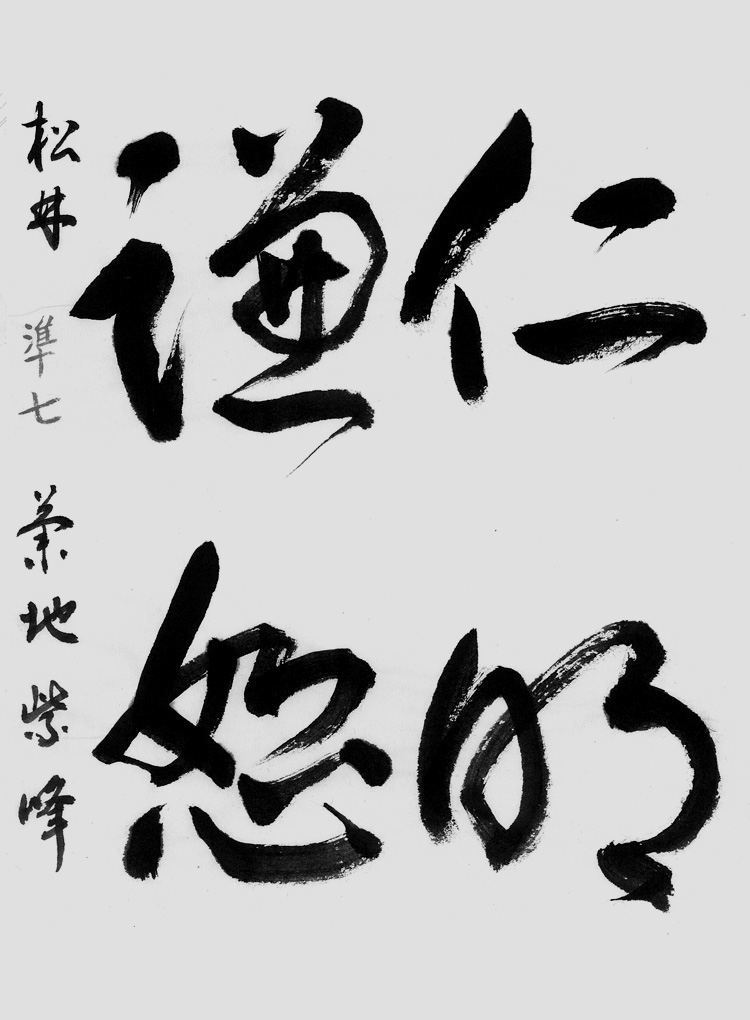 仁明
謙恕
松井 準七 菊地紫峰